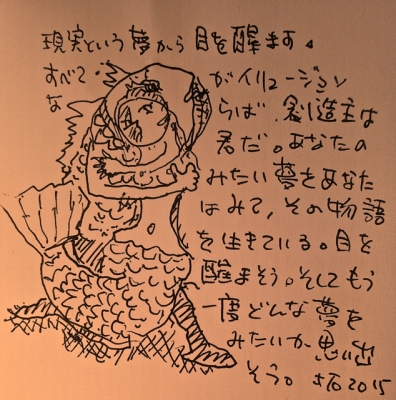 現実という夢から目を醒ます。
すべて がイリュージョン
な らば、創造主は
君だ。あなたの
みたい夢をあなた
はみて、その物語
を生きている。目を
醒まそう。そしてもう
一度どんな夢を
みたいか思い出
そう。 2015